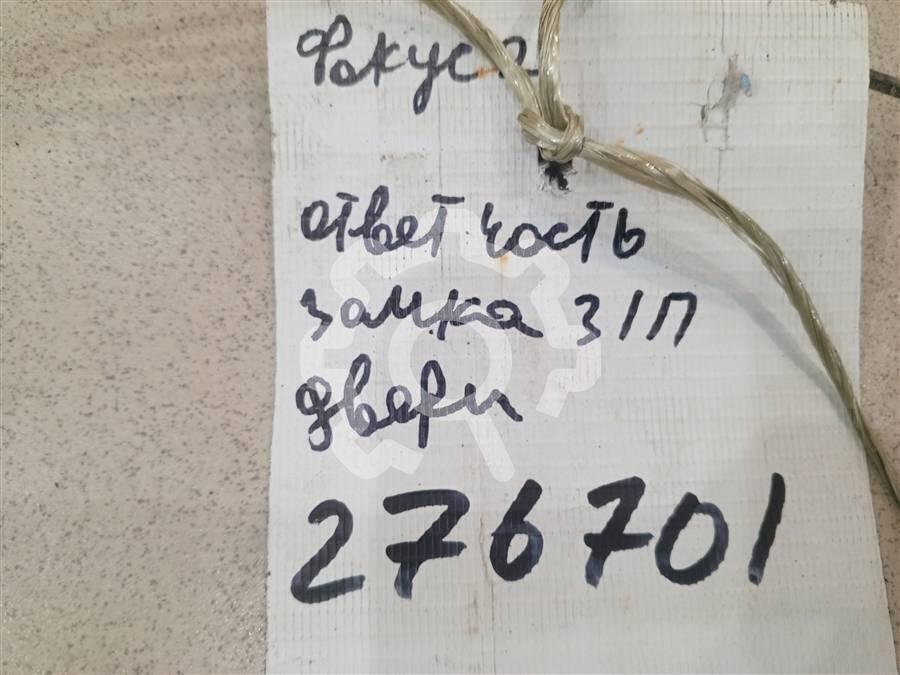 Фокус 2
ответ часть
замка З/П
двери
276701